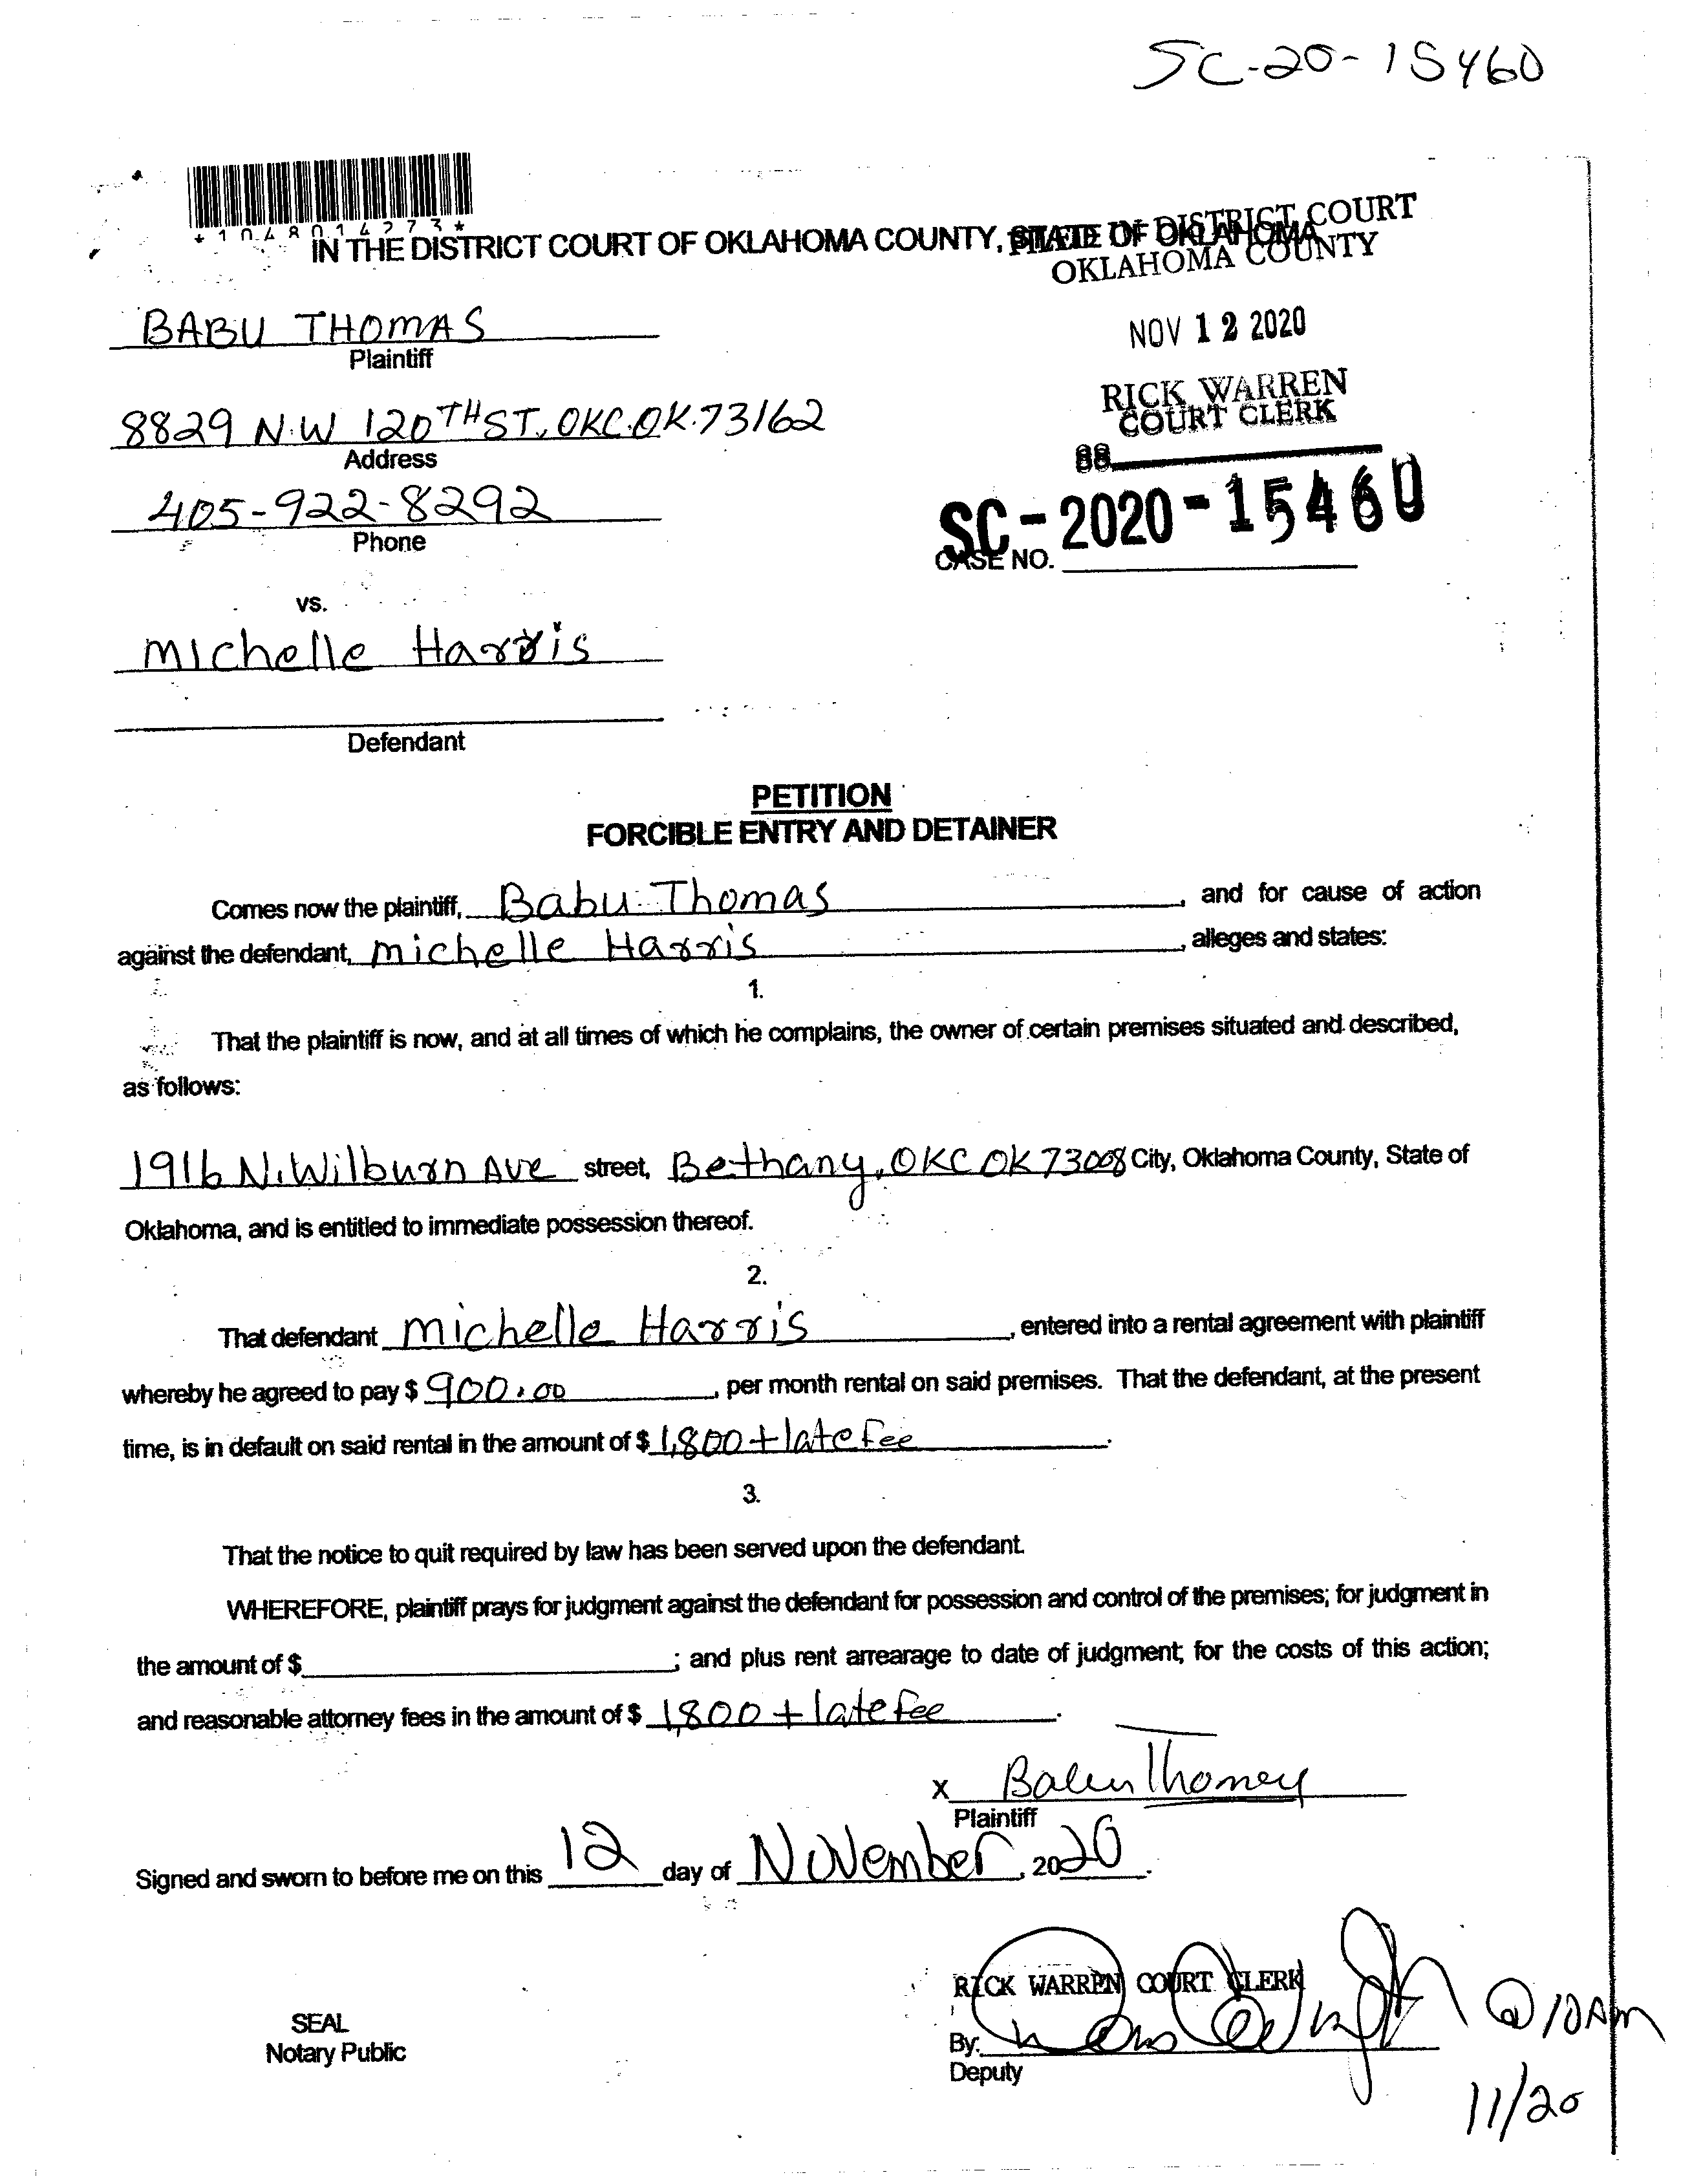 SC-20-15460
*1048014273*
IN THE DISTRICT COURT OF OKLAHOMA COUNTY, STATE OF OKLAHOMA
FILED IN DISTRICT COURT
OKLAHOMA COUNTY
BABU THOMAS
Plaintiff
NOV 12 2020
RICK WARREN
COURT CLERK
8829 N.W 120TH ST., OKC.OK.73162
Address
88
405-922-8292
Phone
SC-2020-15460
CASE NO.
vs.
Michelle Harris
Defendant
PETITION
FORCIBLE ENTRY AND DETAINER
Comes now the plaintiff, Babu Thomas, and for cause of action
against the defendant, Michelle Harris, alleges and states:
1.
That the plaintiff is now, and at all times of which he complains, the owner of certain premises situated and described,
as follows:
1916 N. Wilburn Ave street, Bethany, OKC OK 73008 City, Oklahoma County, State of
Oklahoma, and is entitled to immediate possession thereof.
2.
That defendant Michelle Harris, entered into a rental agreement with plaintiff
whereby he agreed to pay $ 900.00, per month rental on said premises. That the defendant, at the present
time, is in default on said rental in the amount of $ 1,800 + late fee.
3.
That the notice to quit required by law has been served upon the defendant.
WHEREFORE, plaintiff prays for judgment against the defendant for possession and control of the premises; for judgment in
the amount of $ ; and plus rent arrearage to date of judgment; for the costs of this action;
and reasonable attorney fees in the amount of $ 1,800 + late fee.
X Babu Thomas
Plaintiff
Signed and sworn to before me on this 12 day of November, 2020.
RICK WARREN COURT CLERK
SEAL
Notary Public
By:
Deputy
@ 10 Am
11/20